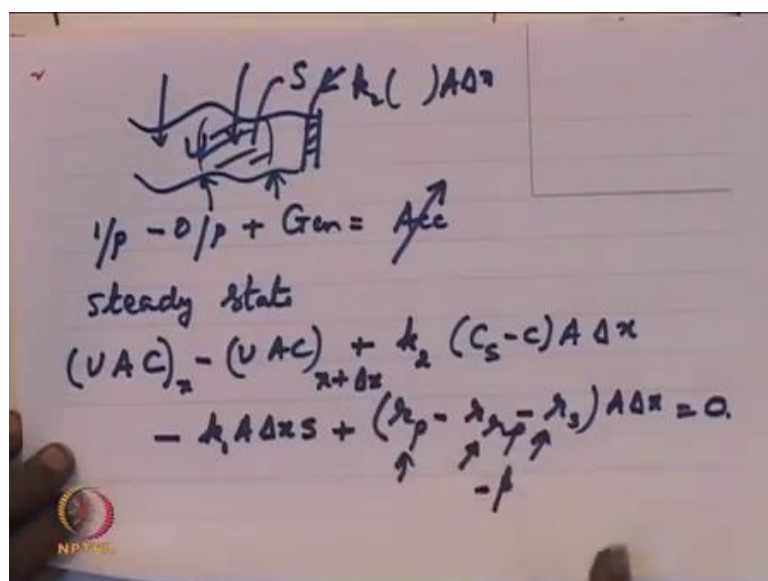 S k₂( )AΔx
I/p - O/p + Gen = Acc
steady state
(UAC)ₓ - (UAC)ₓ₊Δₓ + k₂ (Cₛ-C) A Δx
- k₁ A Δx S + (rₚ - rᵣₚ - rₛ) A Δx = 0.
- β
NPTEL